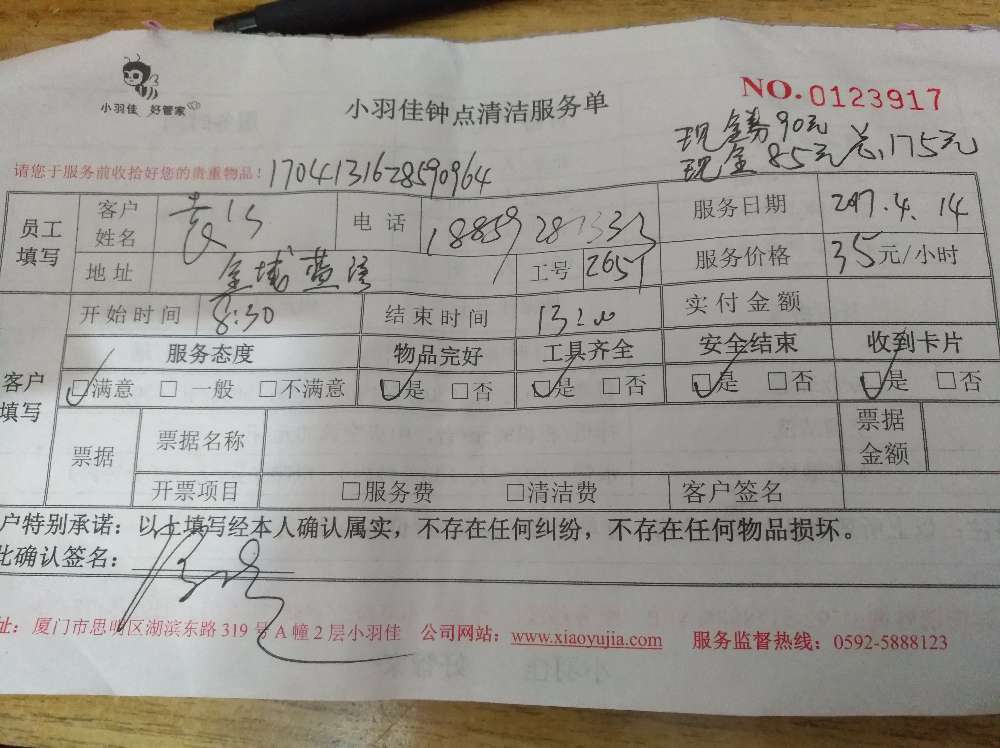 小羽佳 好管家
小羽佳钟点清洁服务单
NO.0123917
现金券90元
现金85元 总175元
请您于服务前收拾好您的贵重物品！1704131628590964
员工填写 客户姓名 电话 服务日期 2017.4.14
地址 金域蓝湾 工号 2651 服务价格 35元/小时
客户填写 开始时间 8:30 结束时间 13:00 实付金额
服务态度 物品完好 工具齐全 安全结束 收到卡片
☑满意 □一般 □不满意 ☑是 □否 ☑是 □否 ☑是 □否 ☑是 □否
票据 票据名称 票据金额
开票项目 □服务费 □清洁费 客户签名
户特别承诺：以上填写经本人确认属实，不存在任何纠纷，不存在任何物品损坏。
此确认签名：
址：厦门市思明区湖滨东路319号A幢2层小羽佳 公司网站：www.xiaoyujia.com 服务监督热线：0592-5888123